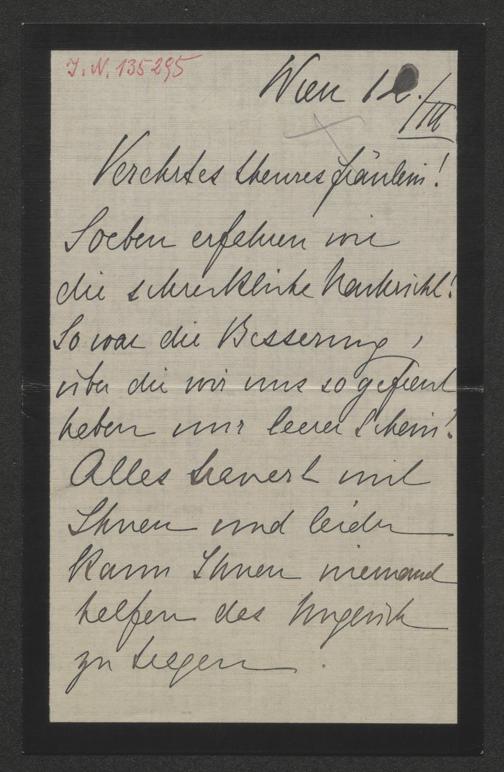 J. N. 135295
Wien 12./III
Verehrtes theures Fräulein!
Soeben erfahren wir
die schreckliche Nachricht!
So war die Besserung,
über die wir uns so gefreut
haben nur leerer Schein!
Alles trauert mit
Ihnen und leider
kann Ihnen niemand
helfen das Unglück
zu tragen.